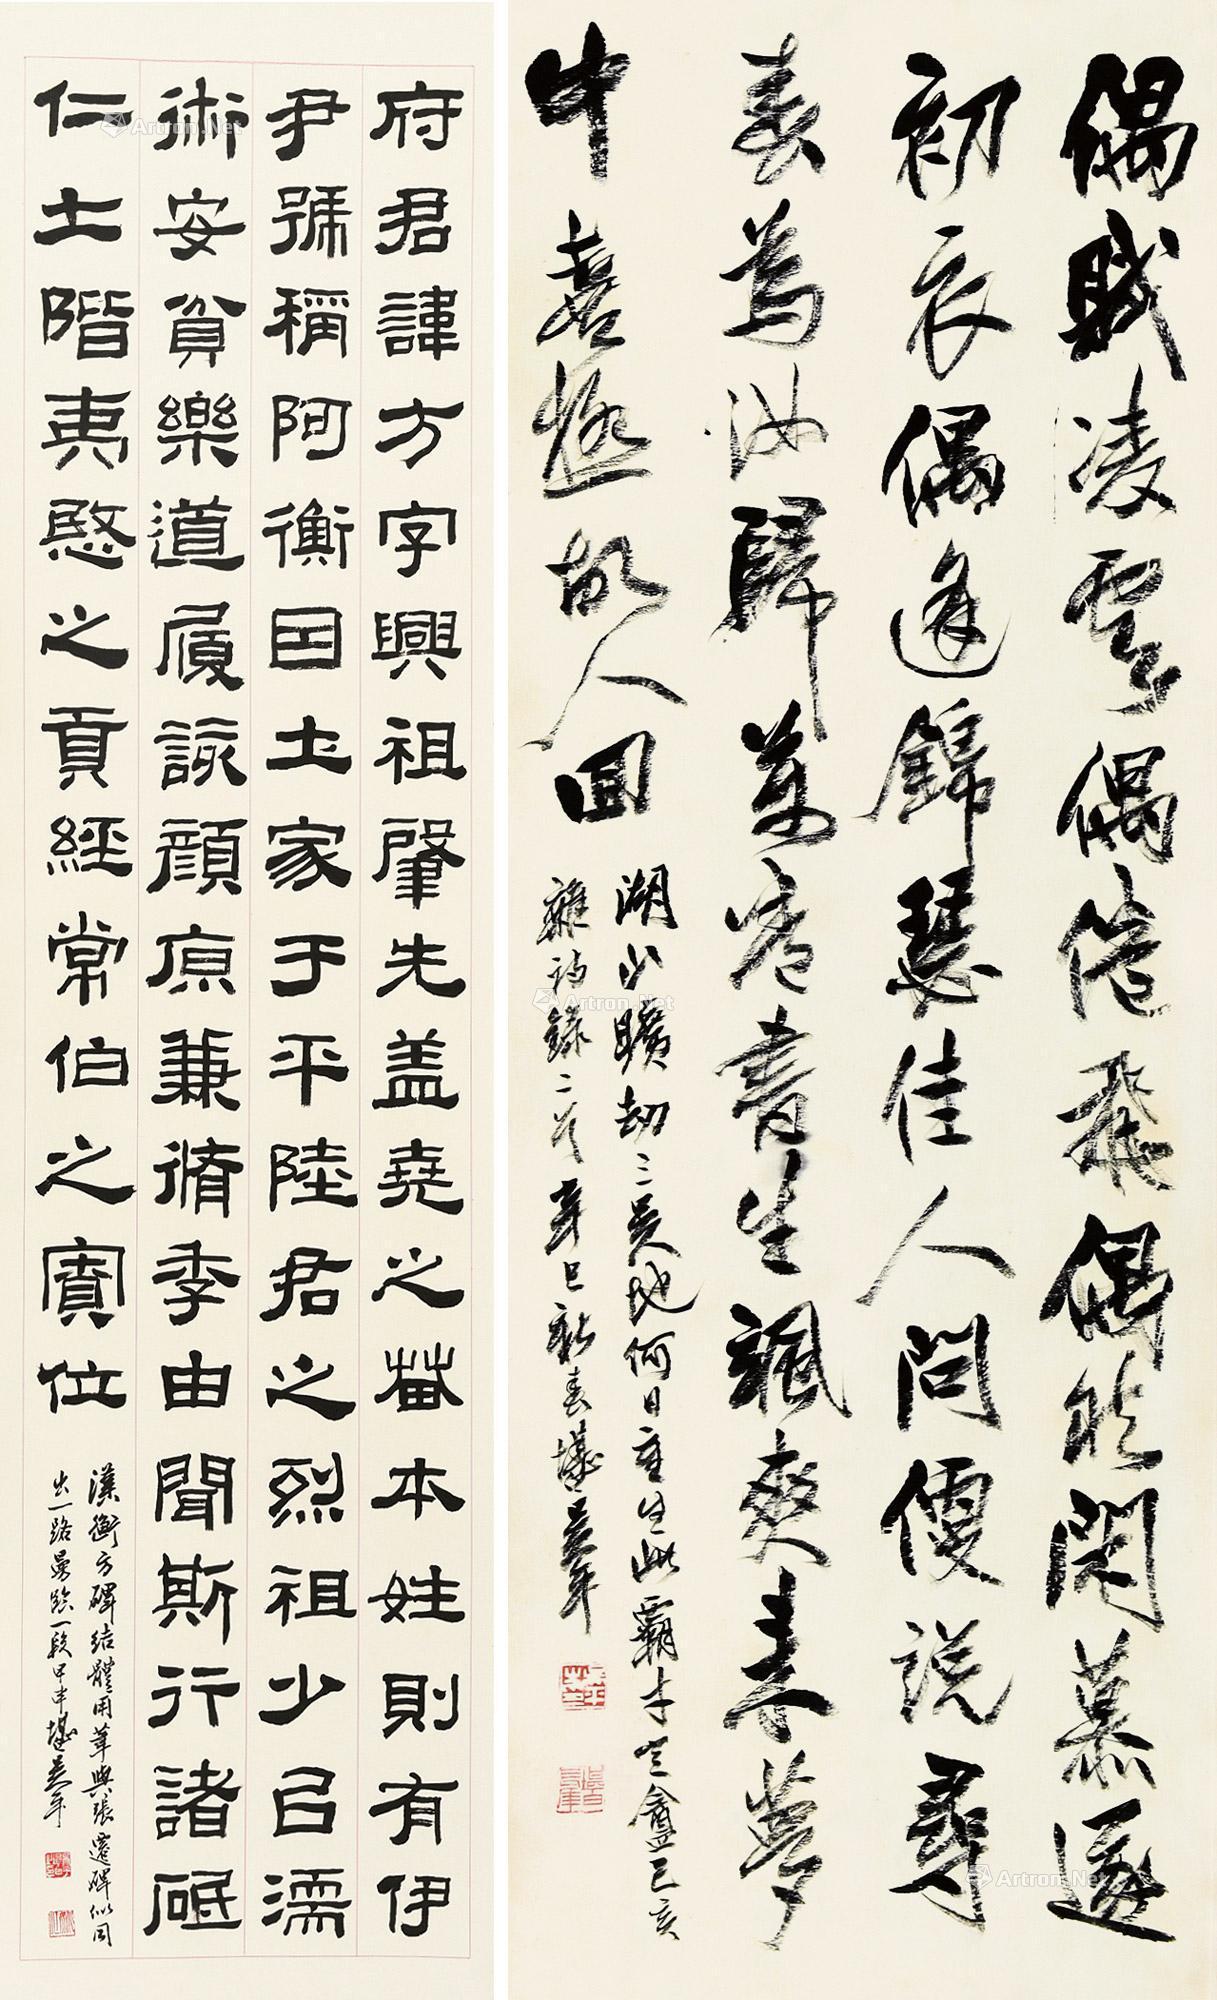 偶賦凌雲偶倦飛偶然閑慕遂
初衣偶逢錦瑟佳人問便說尋
春為汝歸萬卷書生颯爽來夢
中喜極故人回
湖山曠劫三吳地何日重生此霸才定盦己亥
雜詩錄二首辛巳新春
府君諱方字興祖肇先盖堯之苗本姓則有伊
尹號稱阿衡因土家于平陸君之烈祖少㠯濡
術安貧樂道履該顏原兼脩季由聞斯行諸砥
仁土階夷愍之貢經常伯之寮位
漢衡方碑結體用筆與張遷碑似同
出一路臨一段甲申
Artron.Net
Artron.Net
Artron.Net